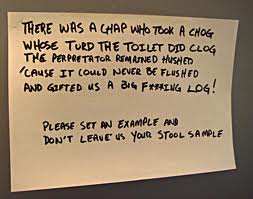 THERE WAS A CHAP WHO TOOK A CHOG
WHOSE TURD THE TOILET DID CLOG
THE PERPRETATOR REMAINED HUSHED
'CAUSE IT COULD NEVER BE FLUSHED
AND GIFTED US A BIG F***ING LOG!
PLEASE SET AN EXAMPLE AND
DON'T LEAVE US YOUR STOOL SAMPLE